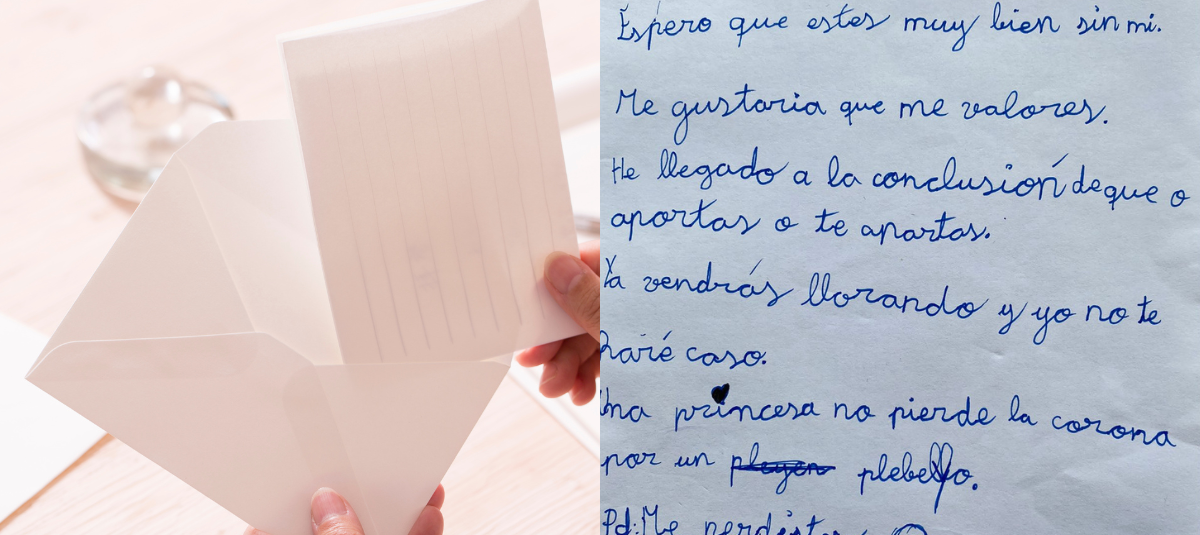 Espero que estes muy bien sin mi.
Me gustaria que me valores.
He llegado a la conclusión de que o
aportas o te apartas.
Ya vendrás llorando y yo no te
haré caso.
Una princesa no pierde la corona
por un plebello.
Pd: Me perdistes